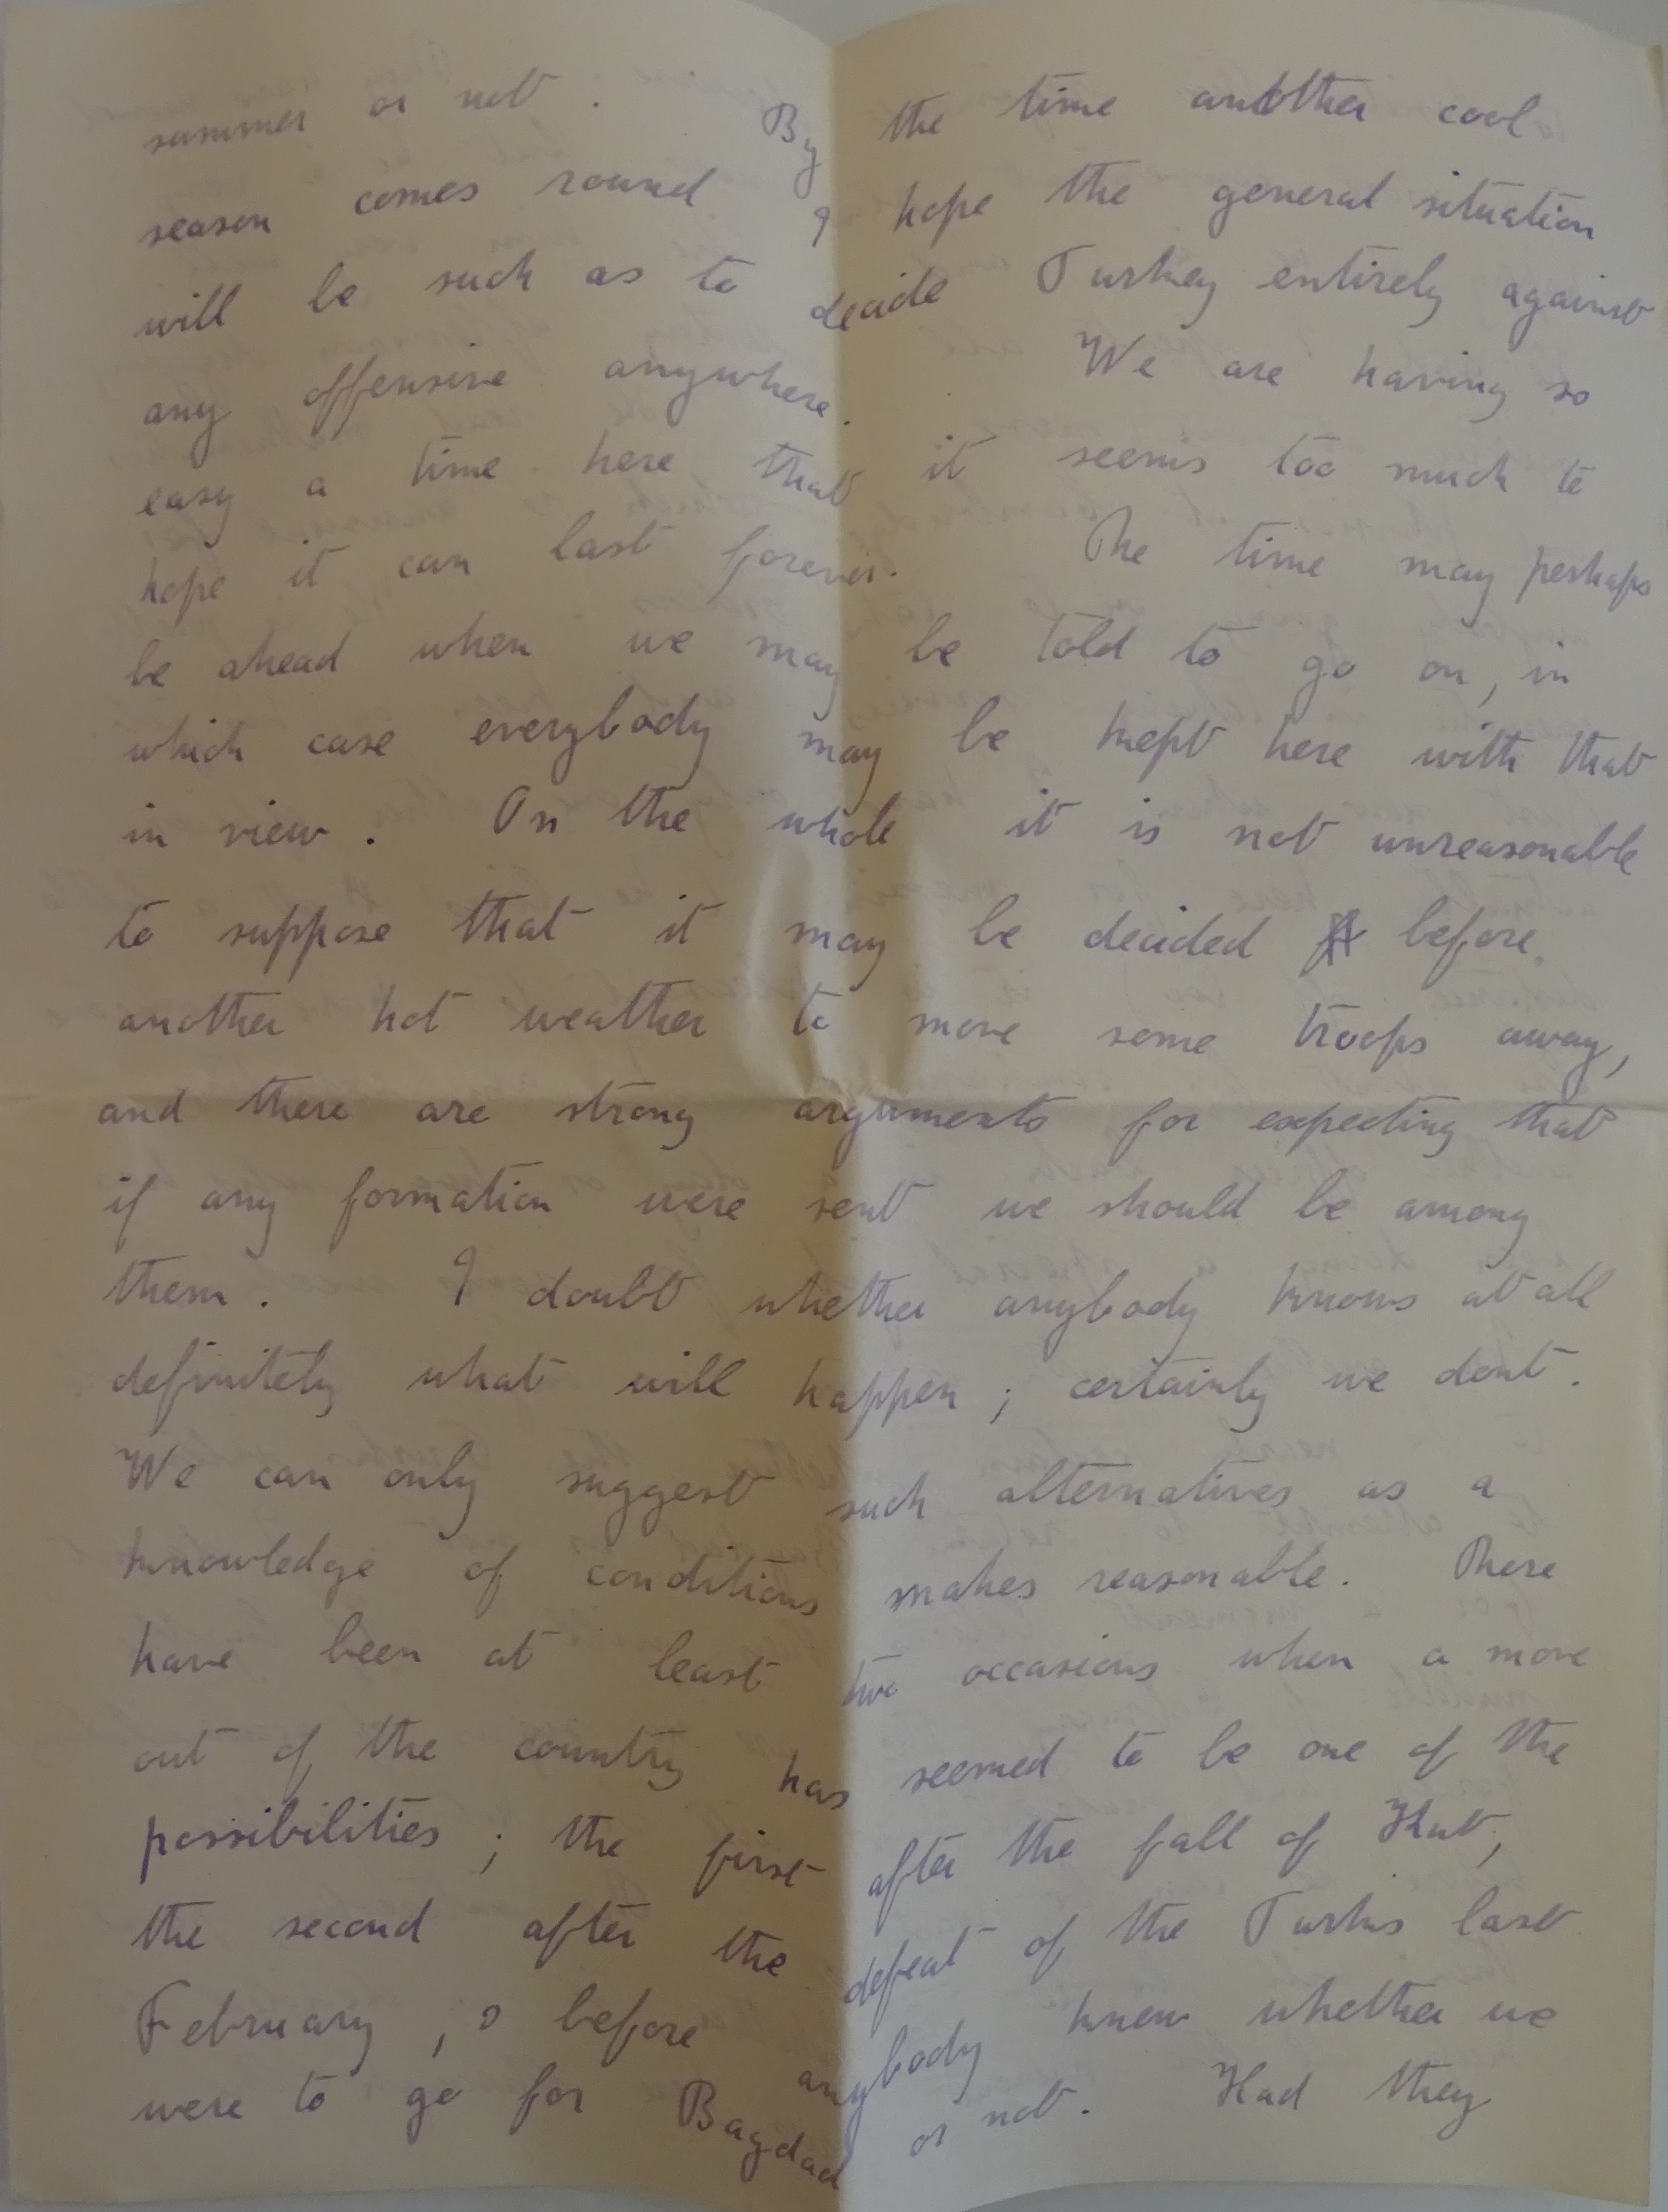 summer or not. By the time another cool
season comes round I hope the general situation
will be such as to decide Turkey entirely against
any offensive anywhere. We are having so
easy a time here that it seems too much to
hope it can last forever. The time may perhaps
be ahead when we may be told to go on, in
which case everybody may be kept here with that
in view. On the whole it is not unreasonable
to suppose that it may be decided before
another hot weather to move some troops away,
and there are strong arguments for expecting that
if any formation were sent we should be among
them. I doubt whether anybody knows at all
definitely what will happen; certainly we dont.
We can only suggest such alternatives as a
knowledge of conditions makes reasonable. There
have been at least two occasions when a move
out of the country has seemed to be one of the
possibilities; the first after the fall of Kut,
the second after the defeat of the Turks last
February, & before anybody knew whether we
were to go for Bagdad or not. Had they